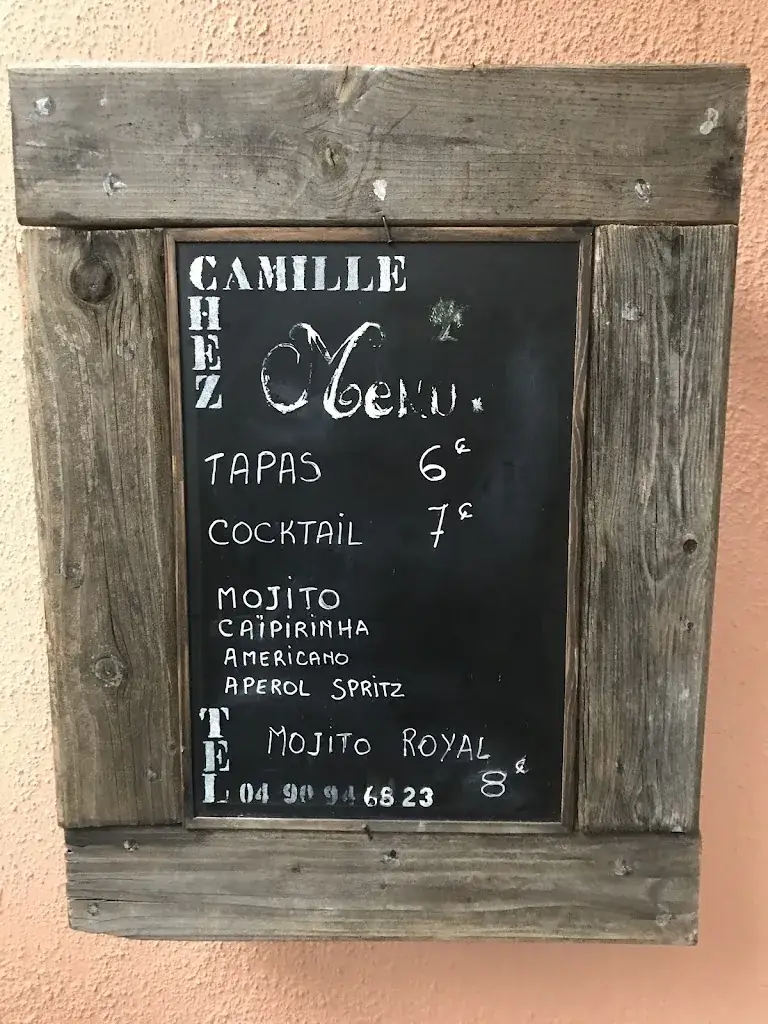 CAMILLE
CHEZ
Menu.
TAPAS 6€
COCKTAIL 7€
MOJITO
CAÏPIRINHA
AMERICANO
APEROL SPRITZ
MOJITO ROYAL
8€
TEL 04 90 94 68 23